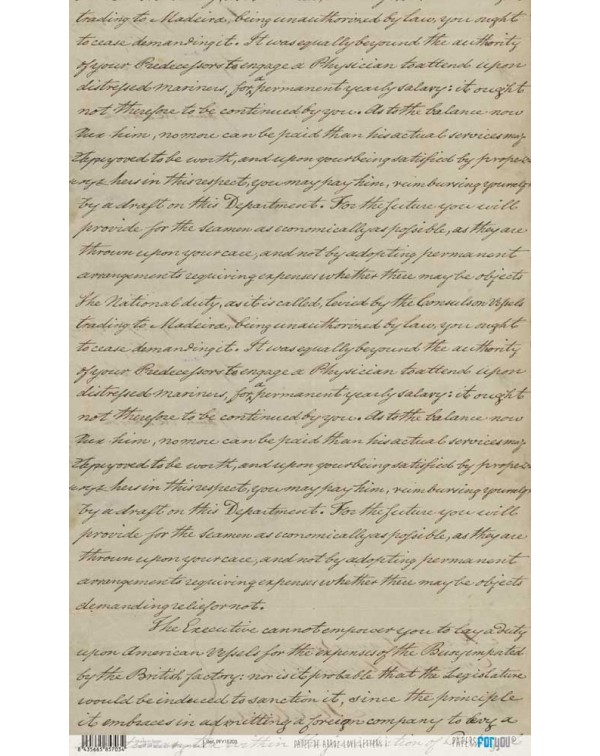 trading to Madeira, being unauthorized by law, you ought
to cease demanding it. It was equally beyond the authority
of your Predecessors to engage a Physician to attend upon
distressed mariners, for a permanent yearly salary: it ought
not therefore to be continued by you. As to the balance now
due him, no more can be paid than his actual services may
be proved to be worth, and upon your being satisfied by proper
vouchers in this respect, you may pay him, reimbursing yourself
by a draft on this Department. For the future you will
provide for the seamen as economically as possible, as they are
thrown upon your care, and not by adopting permanent
arrangements requiring expenses whether there may be objects
The National duty, as it is called, levied by the Consuls on Vessels
trading to Madeira, being unauthorized by law, you ought
to cease demanding it. It was equally beyond the authority
of your Predecessors to engage a Physician to attend upon
distressed mariners, for a permanent yearly salary: it ought
not therefore to be continued by you. As to the balance now
due him, no more can be paid than his actual services may
be proved to be worth, and upon your being satisfied by proper
vouchers in this respect, you may pay him, reimbursing yourself
by a draft on this Department. For the future you will
provide for the seamen as economically as possible, as they are
thrown upon your care, and not by adopting permanent
arrangements requiring expenses whether there may be objects
demanding relief or not.
The Executive cannot empower you to lay a duty
upon American Vessels for the expenses of the imposed
by the British factory: nor is it probable that the Legislature
would be induced to sanction it, since the principle
it embraces in admitting a foreign company to levy a
8 435665 857034
PAPERS FOR YOU